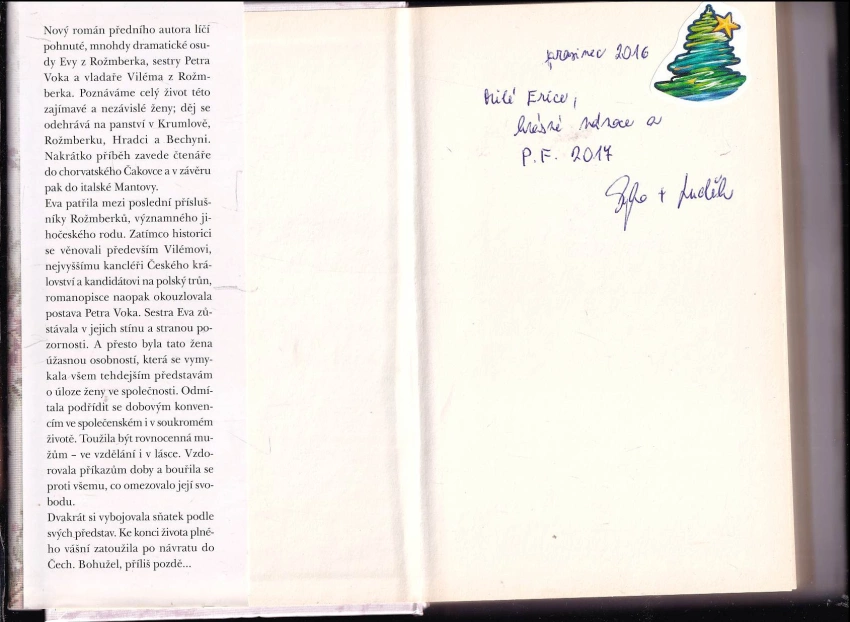 Nový román předního autora líčí
pohnuté, mnohdy dramatické osu-
dy Evy z Rožmberka, sestry Petra
Voka a vladaře Viléma z Rožm-
berka. Poznáváme celý život této
zajímavé a nezávislé ženy; děj se
odehrává na panství v Krumlově,
Rožmberku, Hradci a Bechyni.
Nakrátko příběh zavede čtenáře
do chorvatského Čakovce a v závěru
pak do italské Mantovy.
Eva patřila mezi poslední přísluš-
níky Rožmberků, významného ji-
hočeského rodu. Zatímco historici
se věnovali především Vilémovi,
nejvyššímu kancléři Českého krá-
lovství a kandidátovi na polský trůn,
romanopisce naopak okouzlovala
postava Petra Voka. Sestra Eva zů-
stávala v jejich stínu a stranou po-
zornosti. A přesto byla tato žena
úžasnou osobností, která se vymy-
kala všem tehdejším představám
o úloze ženy ve společnosti. Odmí-
tala podřídit se dobovým konven-
cím ve společenském i v soukromém
životě. Toužila být rovnocenná mu-
žům – ve vzdělání i v lásce. Vzdo-
rovala příkazům doby a bouřila se
proti všemu, co omezovalo její svo-
bodu.
Dvakrát si vybojovala sňatek podle
svých představ. Ke konci života plné-
ho vášní zatoužila po návratu do
Čech. Bohužel, příliš pozdě...
prosinec 2016
Milé Erice,
krásné vánoce a
P.F. 2017
+ Luděk